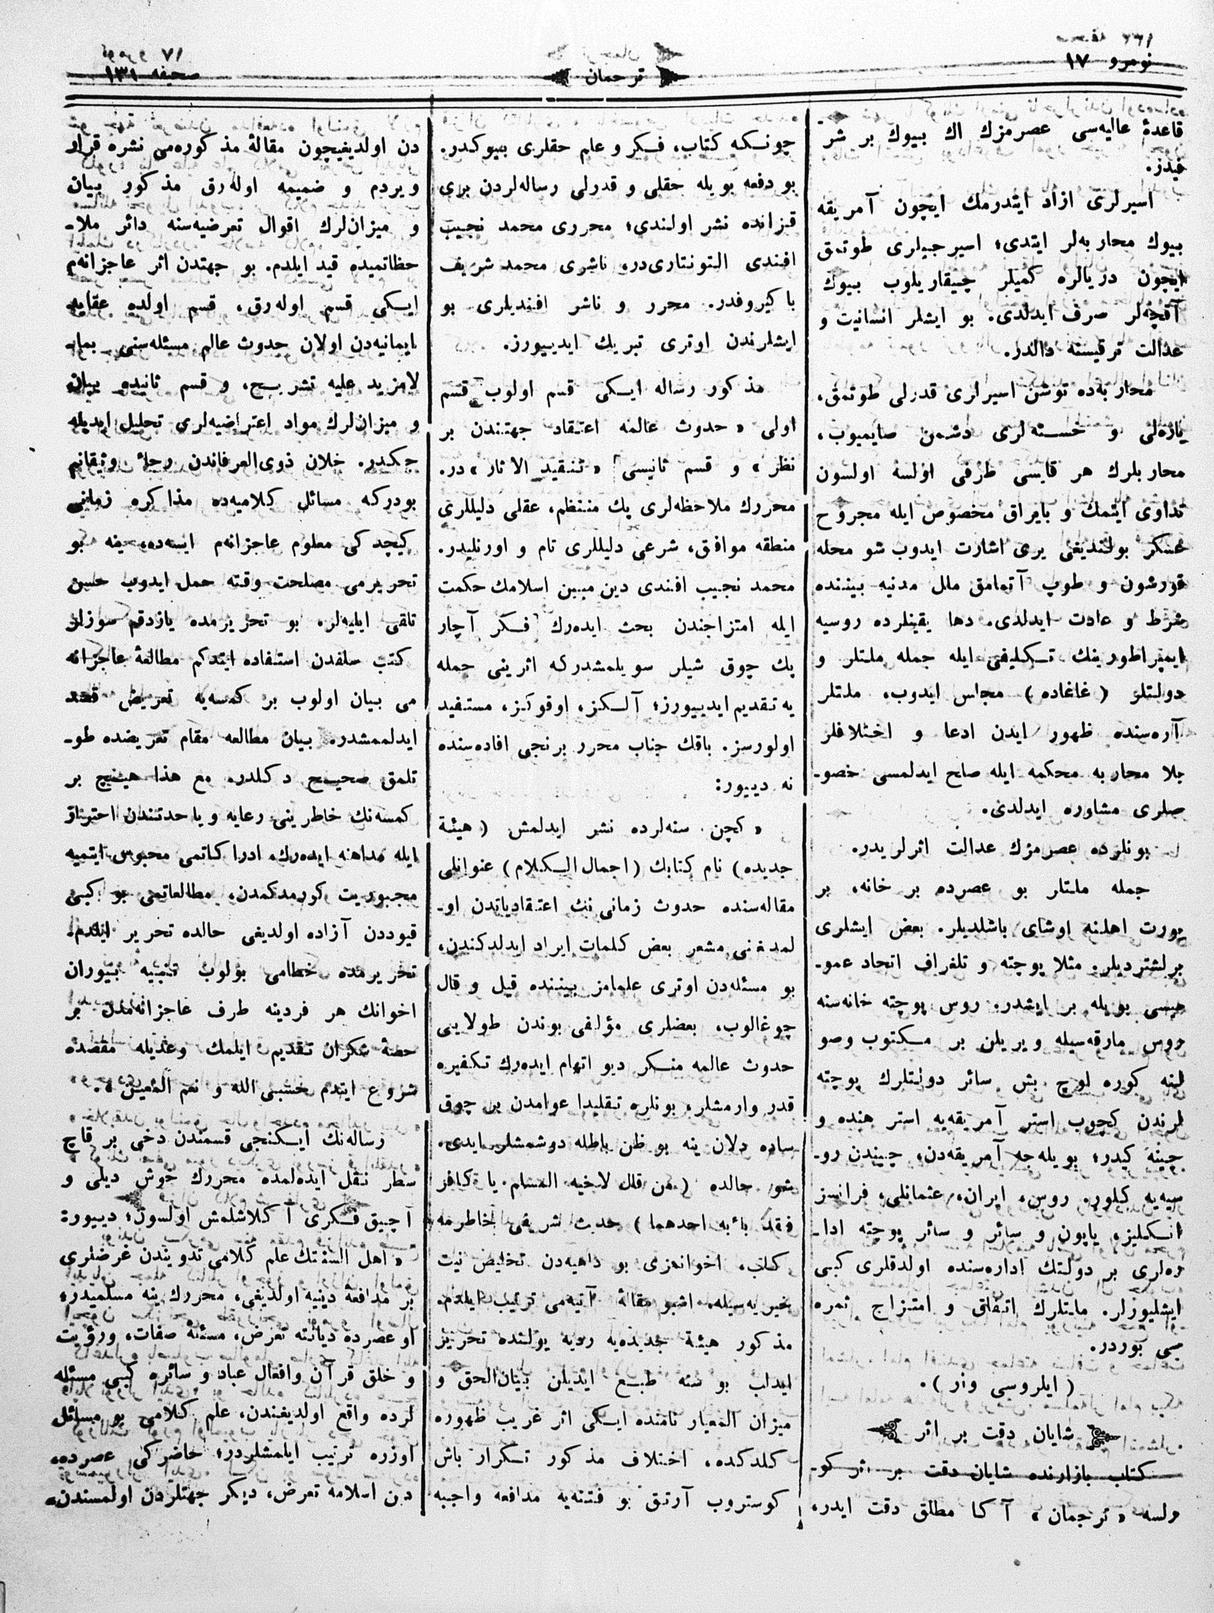 نومرو ۱۷
ترجمان
صحیفه ۱۳۱
قاعدهٔ عالیه‌سی عصرمزك اك بیوك بر شر-
فیدر.
اسیرلری ازاد ایتدرمك ایچون آمریقه
بیوك محاربه‌لر ایتدی؛ اسیرجیلری طوتمق
ایچون دریالره کمیلر چیقاریلوب بیوك
آقچه‌لر صرف ایدلدی. بو ایشلر انسانیت و
عدالت ترقیسنه دالدر.
محاربه‌ده توشن اسیرلری قدرلی طوتمق،
یازه‌لی و خسته‌لری دشمن صایمیوب،
محاربلرك هر قایسی طرفی اولسه اولسون
تداوی ایتمك و بایراق مخصوص ایله مجروح
عسکر بولندیغی یری اشارت ایدوب شو محله
قورشون و طوپ آتمامق ملل مدنیه بیننده
شرط و عادت ایدلدی. دها یقینلرده روسیه
ایمپراطورینك تکلیفی ایله جمله ملتلر و
دولتلر (غاغاده) مجلس ایدوب، ملتلر
آره‌سنده ظهور ایدن ادعا و اختلافلر
بلا محاربه محکمه ایله صلح ایدلمسی خصو-
صلری مشاوره ایدلدی.
بونلرده عصرمزك عدالت اثرلریدر.
جمله ملتلر بو عصرده بر خانه، بر
یورت اهلنه اوشای باشلدیلر. بعض ایشلری
برلشتردیلر. مثلا پوچته و تلغراف اتحاد عمو-
میسی بویله بر ایشدر. روس پوچته خانه‌سنه
روس مارقه‌سیله ویریلن بر مکتوب وصو
لینه کوره اوچ بش سائر دولتلرك پوچته
لرندن کچوب استر آمریقه‌یه استر هنده و
چینه کیدر؛ بویله‌جه آمریقه‌دن، چیندن رو-
سیه‌یه کلور. روس، ایران، عثمانلی، فرانسز
انکلیز، یاپون و سائر و سائر پوچته ادا-
ره‌لری بر دولتك اداره‌سنده اولدقلری کبی
ایشلیورلر. ملتلرك اتفاق و امتزاج ثمره
سی بوردر.
(ایلروسی وار).
شایان دقت بر اثر
کتاب بازارنده شایان دقت بر اثر کو-
رلسه «ترجمان» آکا مطلق دقت ایدر،
چونکه کتاب، فکر و علم حقلری بیوکدر.
بو دفعه بویله حقلی و قدرلی رساله‌لردن بری
قزانده نشر اولندی؛ محرری محمد نجیب
افندی التونتاری‌در، ناشری محمد شریف
باکیروفدر. محرر و ناشر افندیلری بو
ایشلرندن اوتری تبریك ایدییورز.
مذکور رساله ایکی قسم اولوب قسم
اولی «حدوث عالمه اعتقاد جهتندن بر
نظر» و قسم ثانیسی «تنقید الاثار» در.
محررك ملاحظه‌لری پك منتظم، عقلی دلیللری
منطقه موافق، شرعی دلیللری تام و اورنلیدر.
محمد نجیب افندی دین مبین اسلامك حکمت
ایله امتزاجندن بحث ایده‌رك فکر آچار
پك چوق شیلر سویلمشدرکه اثرینی جمله
یه تقدیم ایدییورز؛ آلکز، اوقوکز، مستفید
اولورسز. باقك جناب محرر برنجی افاده‌سنده
نه دییور:
«کچن سنه‌لرده نشر ایدلمش (هیئة
جدیده) نام کتابك (اجمال الکلام) عنوانلی
مقاله‌سنده حدوث زمانی نك اعتقادیاتدن او-
لمدغنی مشعر بعض کلمات ایراد ایدلدکندن،
بو مسئله‌دن اوتری علمامز بیننده قیل و قال
چوغالوب، بعضلری مؤلفی بوندن طولایی
حدوث عالمه منکر دیو اتهام ایده‌رك تکفیره
قدر وارمشلر، بونلره تقلیدا عوامدن بر چوق
ساده دلان ینه بو ظن باطله دوشمشلر ایدی.
شو حالده (من قال لاخیه المسلم یا کافر
فقد باء به احدهما) حدث شریفی خاطرمه
کلب، اخوانمزی بو داهیه‌دن تخلیص نیت
خیریه‌سیله، اشبو مقالهٔ آتیه‌می ترتیب ایلدم.
مذکور هیئة جدیده‌یه ردیه یولنده تحریر
ایدلب بو سنه طبع ایدیلن بیان‌الحق و
میزان المعیار نامنده ایکی اثر غریب ظهوره
کلدکده، اختلاف مذکور تکرار باش
کوستروب آرتق بو فتنه‌یه مدافعه واجبه
دن اولدیغیچون مقالهٔ مذکوره‌می نشره قرار
ویردم و ضمیمه اوله‌رق مذکور بیان
و میزان‌لرك اقوال تعرضیه‌سنه دائر ملا-
حظاتمیده قید ایلدم. بو جهتدن اثر عاجزانه‌م
ایکی قسم اوله‌رق، قسم اولده عقاید
ایمانیه‌دن اولان حدوث عالم مسئله‌سنی بما-
لامزید علیه تشریح، و قسم ثانیده بیان
و میزان‌لرك مواد اعتراضیه‌لری تحلیل ایدیله
جکدر. خلان ذوی‌العرفاندن رجاء وثیقانم
بودرکه مسائل کلامیه‌ده مذاکره زمانی
کیچدکی معلوم عاجزانه‌م ایسه‌ده، ینه بو
تحریرمی مصلحت وقته حمل ایدوب حسن
تلقی ایلیه‌لر. بو تحریرمده یازدقم سوزلر
کتب سلفدن استفاده ایتدکم مطالعهٔ عاجزانه
می بیان اولوب بر کمسه‌یه تعریض قصد
ایدلممشدر. بیان مطالعه مقام تعریضده طو-
تلمق صحیح دکلدر. مع هذا هیچ بر
کمسه‌نك خاطرینی رعایه و یا حدتندن احتراز
ایله مداهنه ایده‌رك، ادراکاتمی محبوس ایتمیه
مجبوریت کورمدکمدن، مطالعاتمی بو کبی
قیوددن آزاده اولدیغی حالده تحریر ایلدم.
تحریرمده خطامی بولوب تنبیه بیوران
اخوانك هر فردینه طرف عاجزانه‌مدن بر
حصهٔ شکران تقدیم ایلمك وعدیله مقصده
شروع ایتدم حسبی الله و نعم المعین».
رساله‌نك ایکنجی قسمندن دخی بر قاچ
سطر نقل ایده‌لمده محررك خوش دیلی و
آچیق فکری آکلاشلمش اولسون؛ دییور:
«اهل السنتك علم کلامی تدویندن غرضلری
بر مدافعهٔ دینیه اولدیغی، محررك ینه مسلمیدر،
او عصرده دیانته تعرض، مسئلهٔ صفات، ورؤیت
و خلق قرآن وافعال عباد و سائره کبی مسئله
لرده واقع اولدیغندن، علم کلامی بو مسائل
اوزره ترتیب ایلمشلردر؛ حاضرکی عصرده،
دین اسلامه تعرض، دیکر جهتلردن اولمسندن،